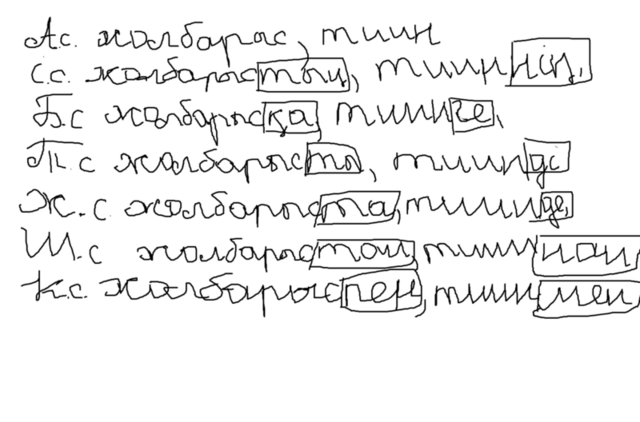 А.с. жолбарыс, тиин
С.с. жолбарыстың, тииннің,
Б.с жолбарысқа, тиинге,
Т.с жолбарысты, тиинді
Ж.с жолбарыста, тиинде,
Ш.с жолбарыстан, тииннан
К.с. жолбарыспен, тиинмен